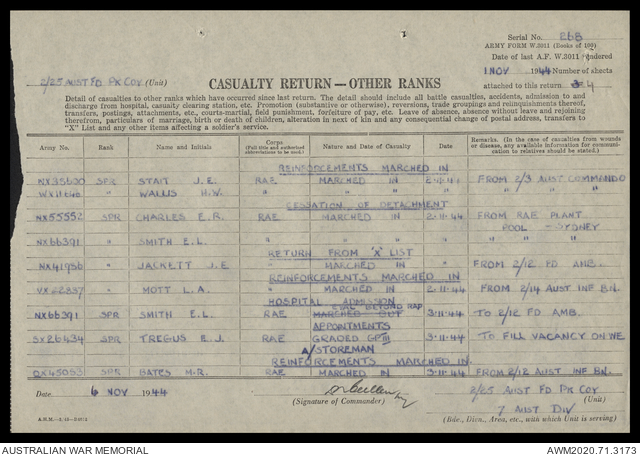 Serial No. 268
ARMY FORM W.3011 (Books of 100)
Date of last A.F. W.3011 rendered
1 NOV 1944 Number of sheets
attached to this return 4
2/25 AUST FD PK COY (Unit)
CASUALTY RETURN — OTHER RANKS
Detail of casualties to other ranks which have occurred since last return. The detail should include all battle casualties, accidents, admission to and
discharge from hospital, casualty clearing station, etc. Promotion (substantive or otherwise), reversions, trade groupings and relinquishments thereof,
transfers, postings, attachments, etc., courts-martial, field punishment, forfeiture of pay, etc. Leave of absence, absence without leave and rejoining
therefrom, particulars of marriage, birth or death of children, alteration in next of kin and any consequential change of postal address, transfers to
"X" List and any other items affecting a soldier's service.
Army No. Rank Name and Initials Corps Nature and Date of Casualty Date Remarks. (In the case of casualties from wounds
or disease, any available information for communi-
cation to relatives should be stated.)
REINFORCEMENTS MARCHED IN
SPR STAIT J.E. RAE MARCHED IN FROM 2/3 AUST COMMANDO
WX11646 " WALLIS H.W. " " " " " "
CESSATION OF DETACHMENT
NX55552 SPR CHARLES E.R. RAE MARCHED IN 2-11-44 FROM RAE PLANT
POOL - SYDNEY
NX66391 " SMITH E.L. " " " " " "
RETURN FROM 'X' LIST
" JACKETT J.E " MARCHED IN " FROM 2/12 FD AMB.
REINFORCEMENTS MARCHED IN
" MOTT L.A. " MARCHED IN 2-11-44 FROM 2/14 AUST INF BN.
HOSPITAL ADMISSION
EVAC BEYOND RAP
NX66391 SPR SMITH E.L. RAE MARCHED OUT 3-11-44 TO 2/12 FD AMB.
APPOINTMENTS
SX26434 SPR TREGUS E.J. RAE GRADED GP III 3-11-44 TO FILL VACANCY ON WE
A/STOREMAN
REINFORCEMENTS MARCHED IN.
SPR BATES M.R. RAE MARCHED IN 3-11-44 FROM 2/12 AUST INF BN.
Date 6 NOV 1944
(Signature of Commander)
2/25 AUST FD PK COY
(Unit)
7 AUST DIV
(Bde., Divn., Area, etc., with which Unit is serving)
AUSTRALIAN WAR MEMORIAL
AWM2020.71.3173